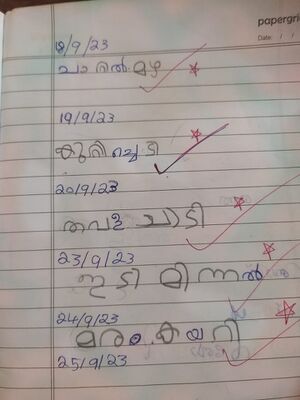 papergri
Date: / /
18/9/23
ചാറൽ മഴ
19/9/23
കുരിച്ചെടി
20/9/23
തവള ചാടി
23/9/23
ഇടി മിന്നൽ
24/9/23
മരം കയറി
25/9/23